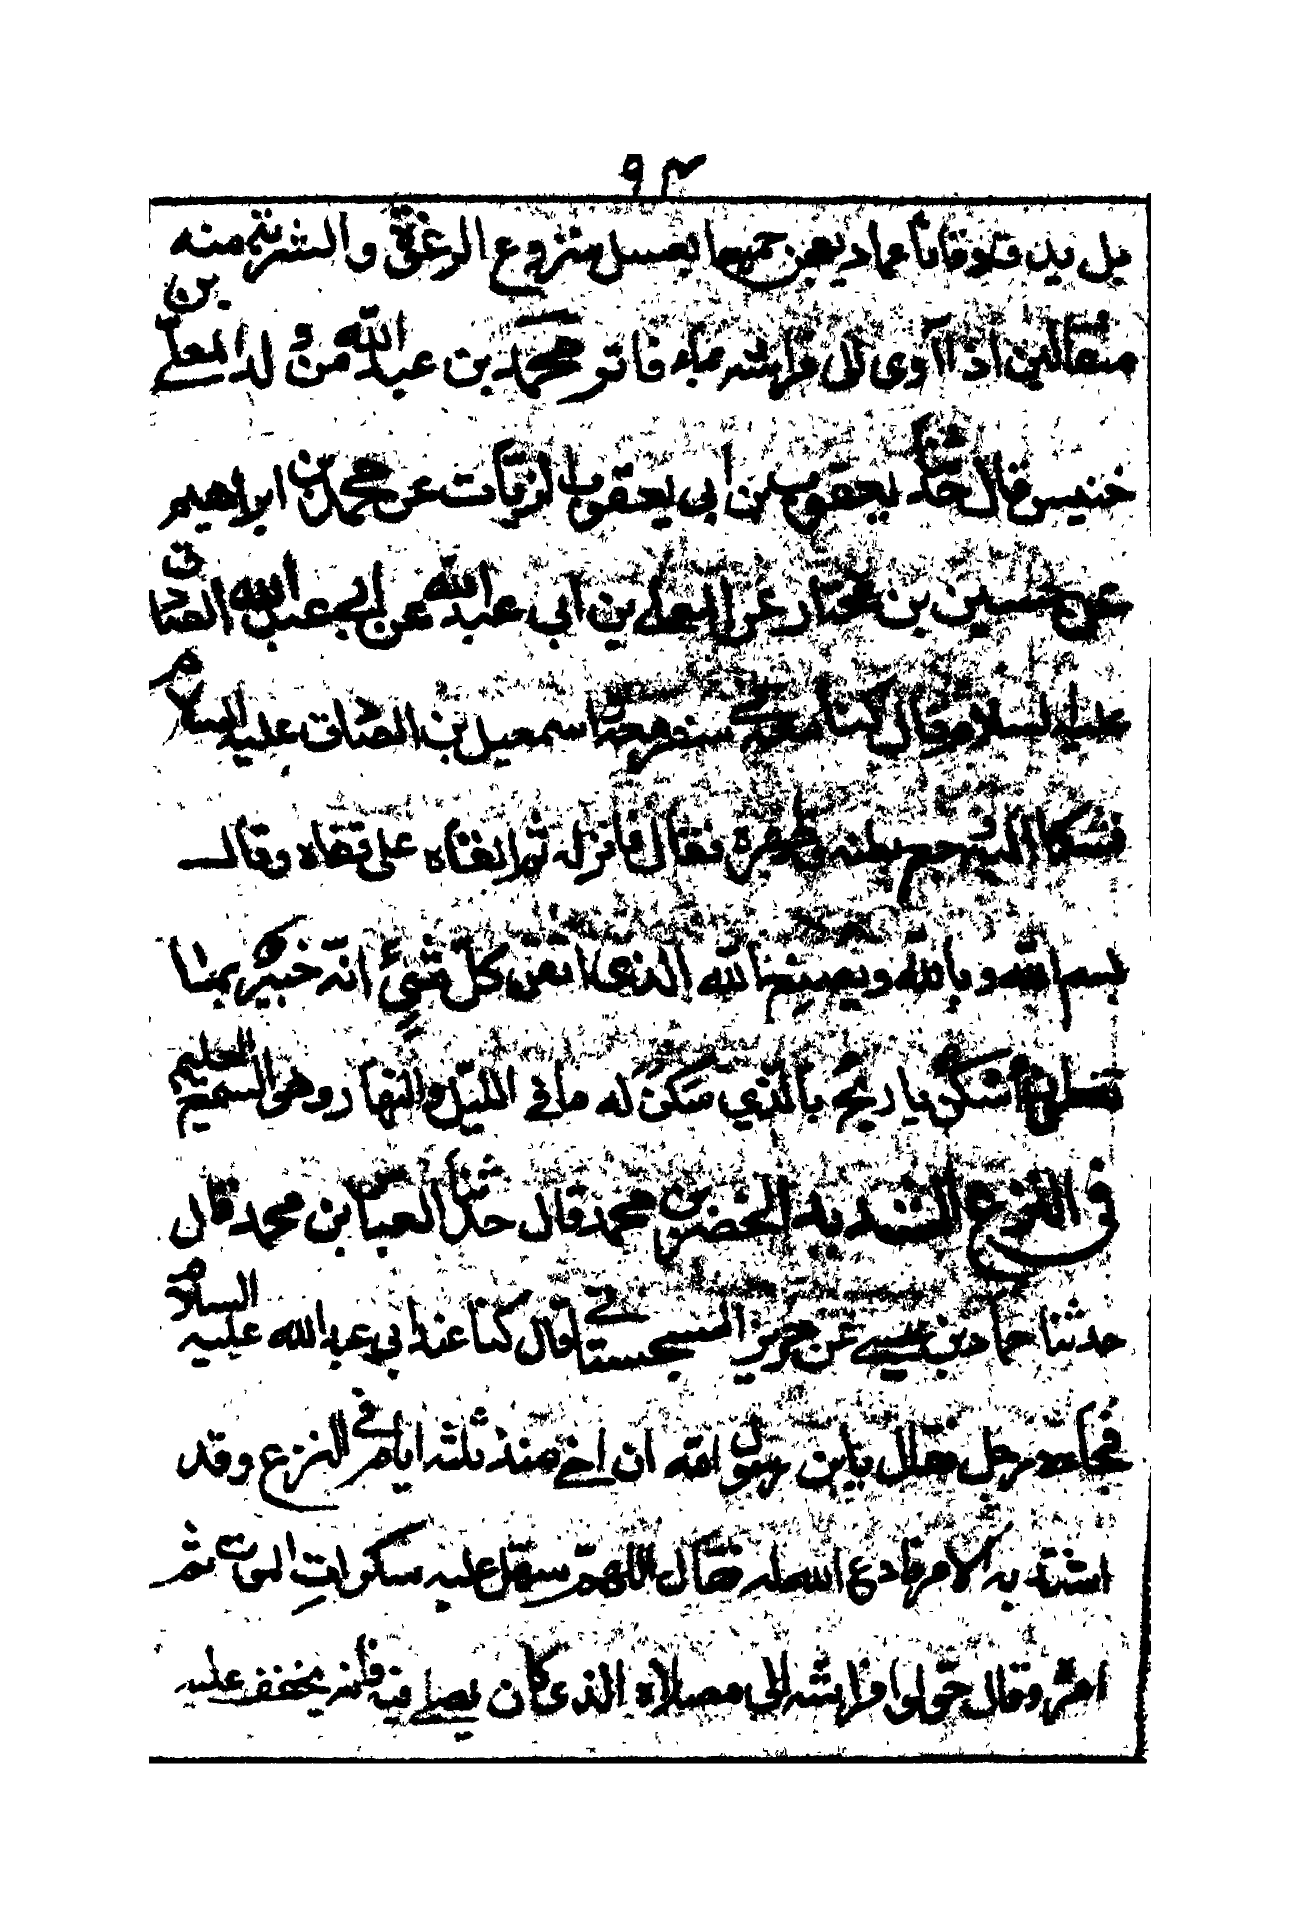 ٩٣
بل يد قلوقايا عماد يعجن جميعا بعسل منزوع الرغوة والشربة منه
مثقالين اذا آوى الى فراشه بماء فاتر محمد بن عبدالله من ولد المعلى بن
خنيس قال حدثنا يعقوب بن ابي يعقوب الزيات عن محمد بن ابراهيم
عن حسين بن مختار عن المعلى بن ابى عبد الله عن ابي عبدالله الصادق
عليه السلام قال كنا معه في سفر ومعه اسمعيل بن الصادق عليه السلام
فشكا اليه وجع بطنه وظهره فقال فانزله ثم القاه على قفاه وقال
بسم الله وبالله وبصنع الله الذى اتقن كل شئ انه خبير بما
تفعلون اسكن يا ريح بالذي سكن له ما في الليل والنهار وهو السميع العليم
فى النزع الشديد الخضر بن محمد قال حدثنا العباس بن محمد قال
حدثنا حماد بن عيسى عن حريز السجستاني قال كنا عند ابي عبد الله عليه السلام
فجاءه رجل فقال يابن رسول الله ان اخى منذ ثلثة ايام في النزع وقد
اشتد به الامر فادع الله له فقال اللهم سهل عليه سكرات الموت ثم
امره وقال حولوا فراشه الى مصلاه الذى كان يصلى فيه فانه يخفف عليه